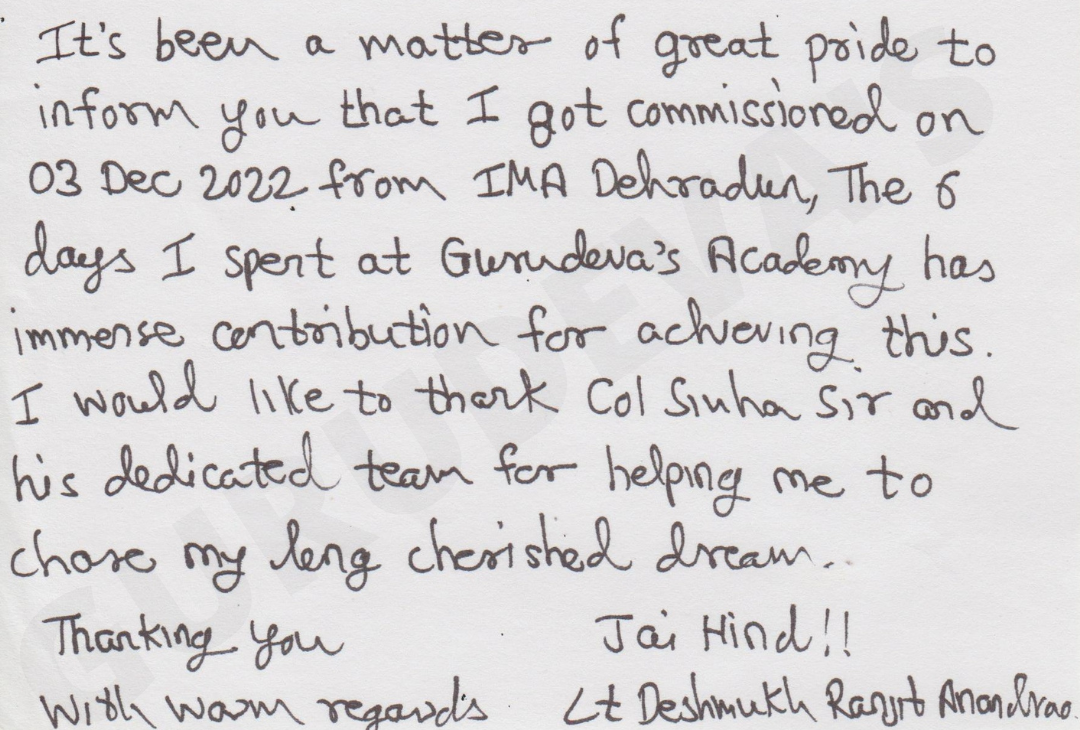 It's been a matter of great pride to
inform you that I got commissioned on
03 Dec 2022 from IMA Dehradun, The 6
days I spent at Gurudeva's Academy has
immense contribution for achieving this.
I would like to thank Col Sinha Sir and
his dedicated team for helping me to
chase my long cherished dream.
Thanking you Jai Hind!!
With warm regards Lt Deshmukh Ranjit Anandrao
GURUDEVA'S